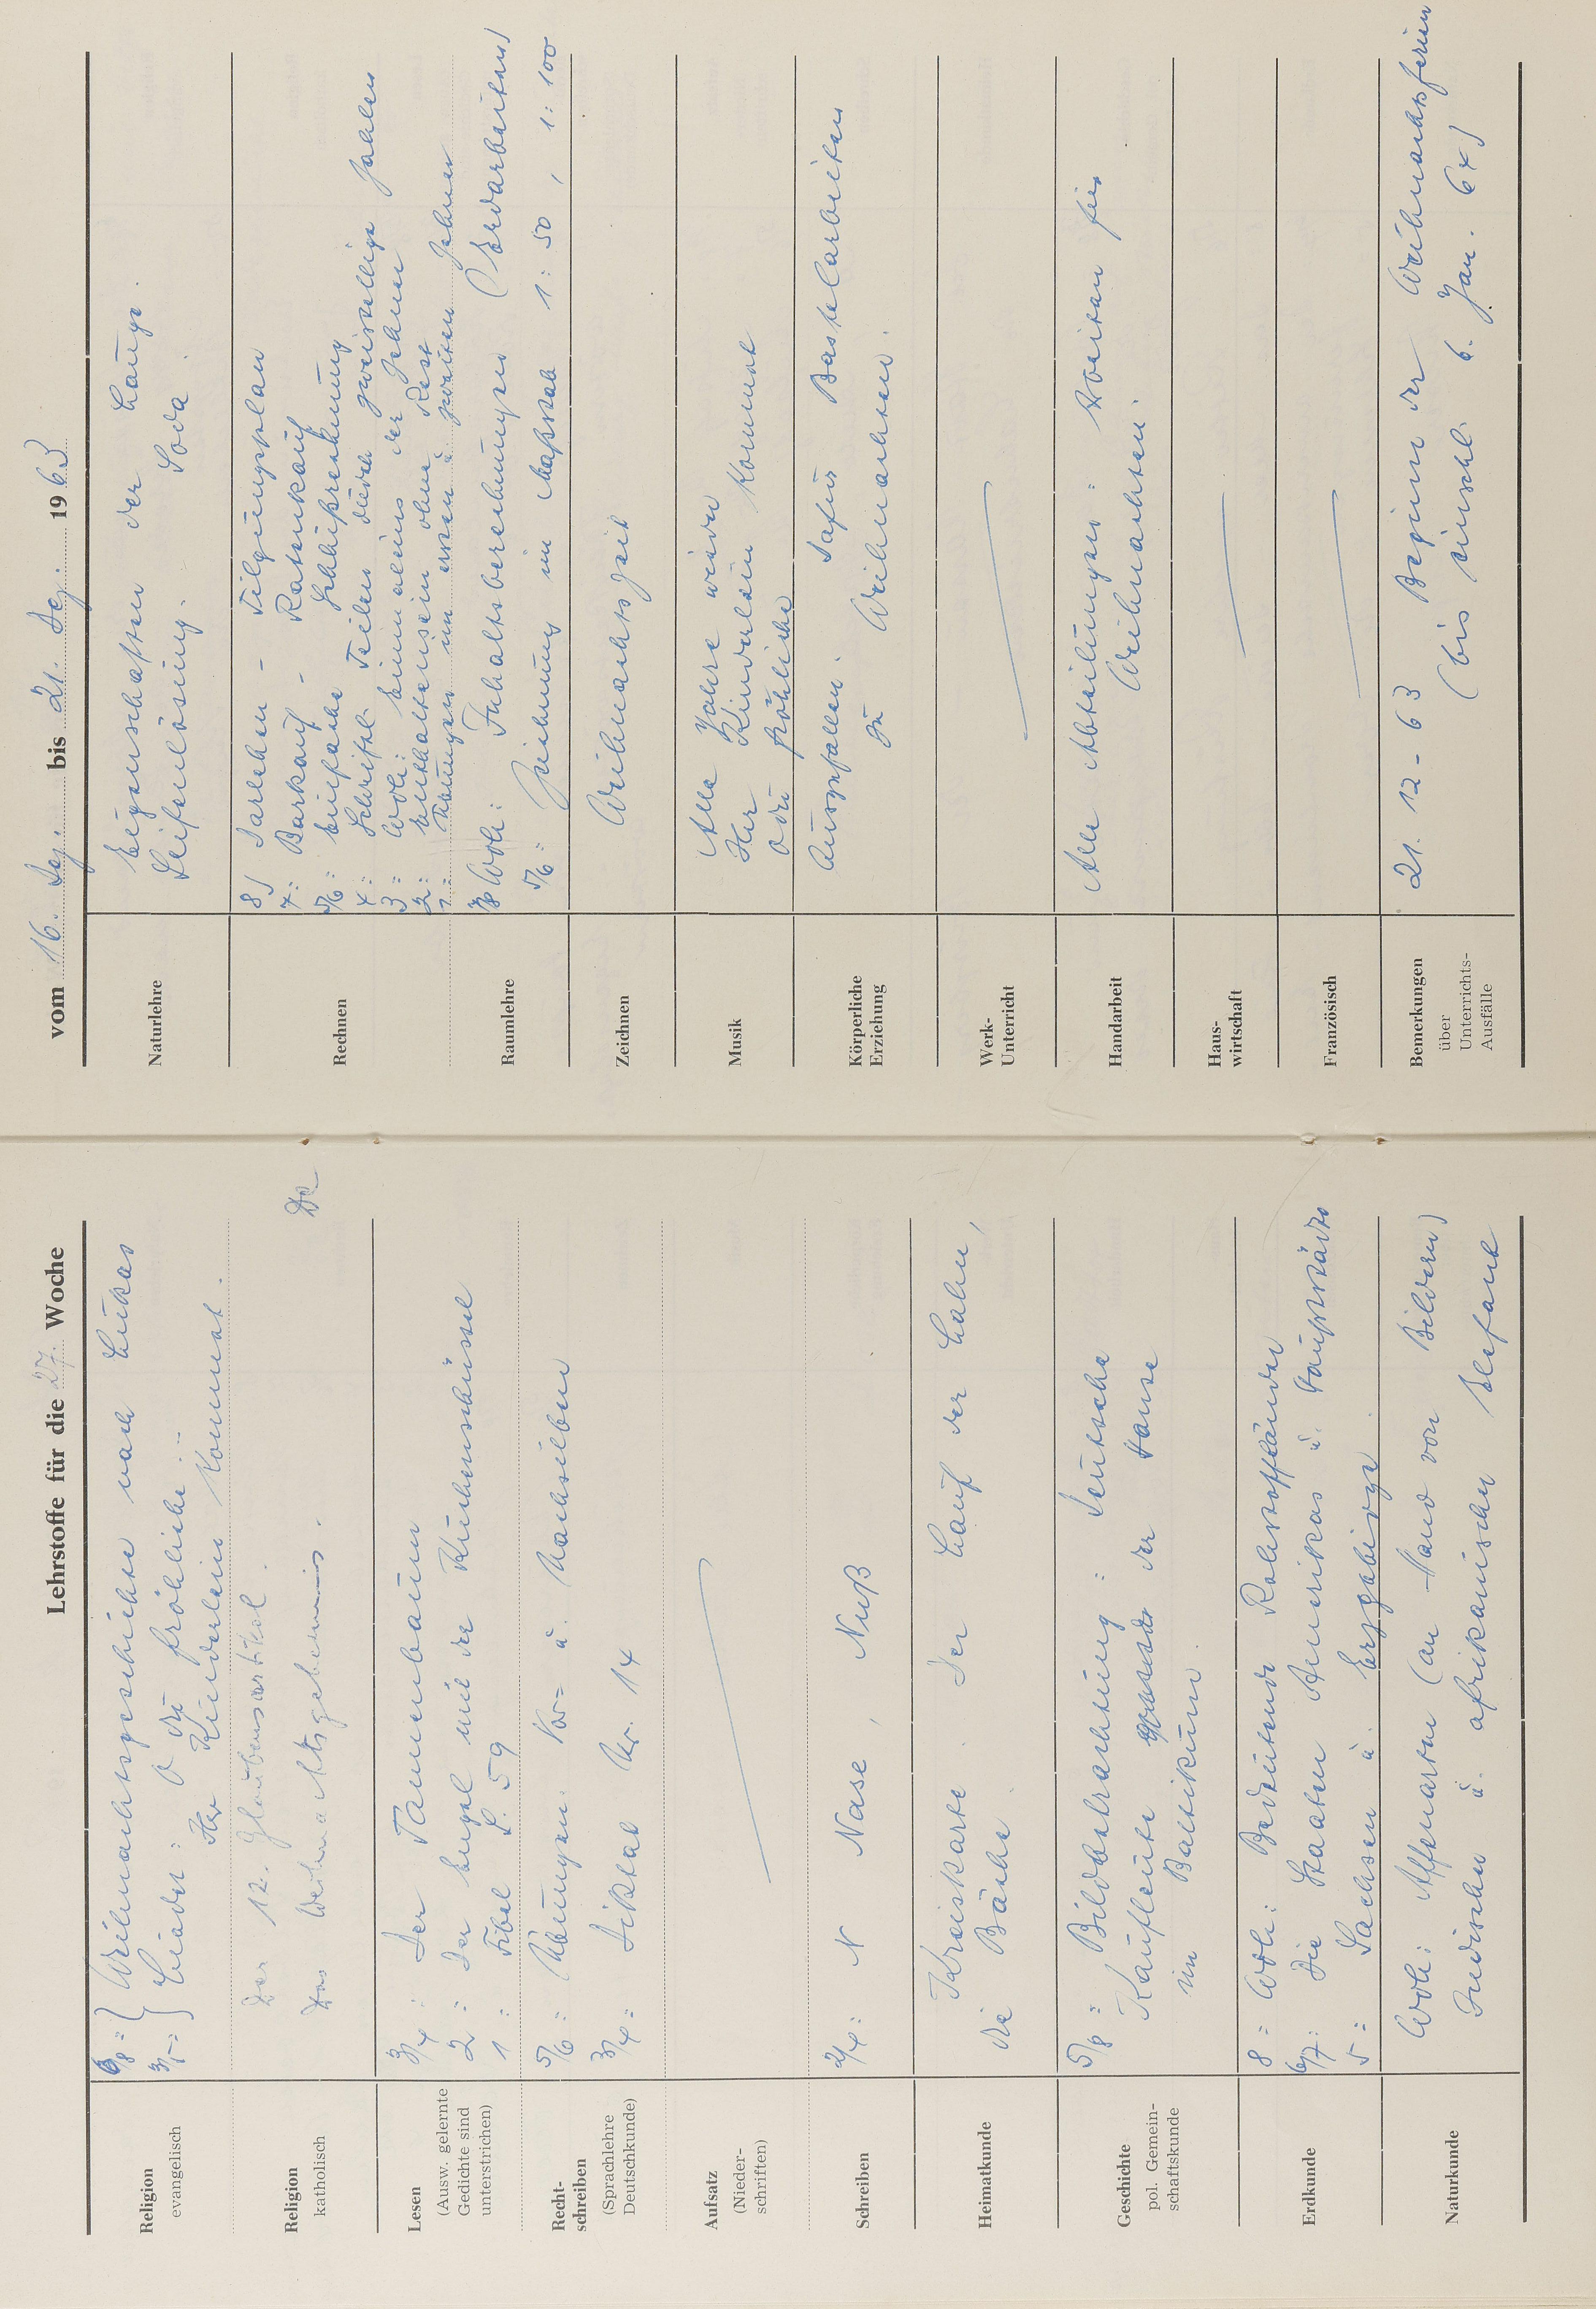 Lehrstoffe für die 27. Woche
Religion
evangelisch
6/8 = } Weihnachtsgeschichte nach Lukas
3/5 = } Lieder: O du fröhliche ..
Ihr Kinderlein kommet.
Religion
katholisch
Der 12. Glaubensartikel.
Das Weihnachtsgeheimnis.
Lesen
(Ausw. gelernte
Gedichte sind
unterstrichen)
3/4 : Der Tannenbaum
2 : Der Engel mit der Kuchenschüssel
1 : Fibel S. 59
Recht-
schreiben
(Sprachlehre
Deutschkunde)
5/6 : Übungen: Vor= u. Nachsilben
3/4 = Diktat Nr. 14
Aufsatz
(Nieder-
schriften)
Schreiben
2/4: N Nase , Nuß
Heimatkunde
Kreiskarte. Der Lauf der Lahn,
die Bäche.
Geschichte
pol. Gemein-
schaftskunde
5/8 = Bildbetrachtung: Deutsche
Kaufleute der Hanse
im Baltikum.
Erdkunde
8 = Wdh: Bedeutende Rohstoffländer
6/7: Die Staaten Amerikas u. Hauptstädte
5 = Sachsen u. Erzgebirge.
Naturkunde
Wdh: Affenarten (an Hand von Bildern)
Indischer u. afrikanischer Elefant
vom 16. Dez. bis 21. Dez. 1963
Naturlehre
Eigenschaften der Lauge.
Seifenlösung. Soda.
Rechnen
8) Darlehen - Tilgungsplan
7: Barkauf - Ratenkauf
5/6 = Einfache Schlußrechnung
4 = Schriftl. Teilen durch zweistellige Zahlen
3 = Wdh: Einmaleins der Zehner
2: Enthaltensein ohne Rest
1 = Übungen im ersten u. zweiten Zehner
Raumlehre
7/8 Wdh: Inhaltsberechnungen (Erdarbeiten)
5/6 = Zeichnung im Maßstab 1:50 , 1:100
Zeichnen
Weihnachtszeit
Musik
Alle Jahre wieder
Ihr Kinderlein kommet
O du fröhliche
Körperliche
Erziehung
Ausgefallen. Dafür Bastelarbeiten
zu Weihnachten.
Werk-
Unterricht
Handarbeit
Alle Abteilungen: Arbeiten für
Weihnachten.
Haus-
wirtschaft
Französisch
Bemerkungen
über
Unterrichts-
Ausfälle
21. 12 - 63 Beginn der Weihnachtsferien
(bis einschl. 6. Jan. 64)